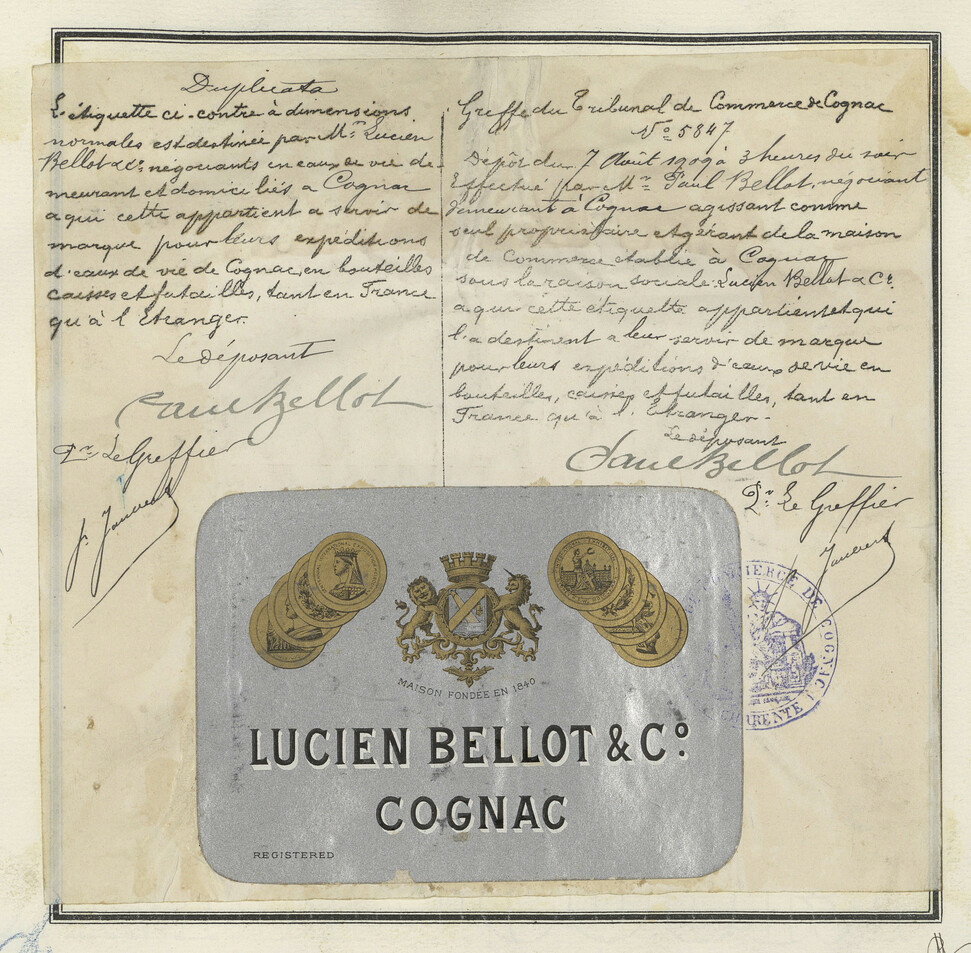 Duplicata
L'étiquette ci-contre à dimensions
normales est destinée par Mr. Lucien
Bellot & Cie négociants en eaux de vie de-
meurant et domiciliés à Cognac
a qui cette appartient a servir de
marque pour leurs expéditions
d'eaux de vie de Cognac, en bouteilles
caisses et futailles, tant en France
qu'à l'Etranger.
Le déposant
Paul Bellot
Pr. Le Greffier
Greffe du Tribunal de Commerce de Cognac
No 5847
Dépôt du 7 Août 1909 à 3 heures du soir
Effectué par Mr. Paul Bellot, négociant
demeurant à Cognac agissant comme
seul propriétaire et gérant de la maison
de Commerce établie à Cognac
sous la raison sociale: Lucien Bellot & Cie.
a qui cette étiquette appartient et qui
l'a destinent a leur servir de marque
pour leurs expéditions d'eaux de vie en
bouteilles, caisses et futailles, tant en
France qu'à l'Etranger-
Le déposant
Paul Bellot
Pr. Le Greffier
COMMERCE DE COGNAC
CHARENTE
MAISON FONDÉE EN 1840
LUCIEN BELLOT & Co.
COGNAC
REGISTERED